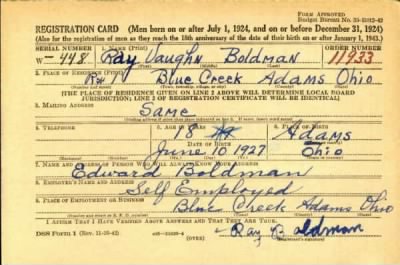 FORM APPROVED
REGISTRATION CARD (Men born on or after July 1, 1924, and on or before December 31, 1924)
(Also for the registration of men as they reach the 18th anniversary of the date of their birth on or after January 1, 1943.)
SERIAL NUMBER 1. NAME (Print) ORDER NUMBER
W-448 Ray Vaughn Boldman 11933
(First) (Middle) (Last)
2. PLACE OF RESIDENCE (Print)
Blue Creek Adams Ohio
[THE PLACE OF RESIDENCE GIVEN ON LINE 2 ABOVE WILL DETERMINE LOCAL BOARD
JURISDICTION; LINE 2 OF REGISTRATION CERTIFICATE WILL BE IDENTICAL]
3. MAILING ADDRESS
Same
[Mailing address if other than place indicated on line 2. If same, insert word same]
4. TELEPHONE 5. AGE IN YEARS 6. PLACE OF BIRTH
18 Adams
DATE OF BIRTH
June 10 1927 Ohio
7. NAME AND ADDRESS OF PERSON WHO WILL ALWAYS KNOW YOUR ADDRESS
Edward Boldman
8. EMPLOYER'S NAME AND ADDRESS
Self Employed
9. PLACE OF EMPLOYMENT OR BUSINESS
Blue Creek Adams Ohio
I AFFIRM THAT I HAVE VERIFIED ABOVE ANSWERS AND THAT THEY ARE TRUE.
DSS Form 1 (Rev. 11-16-42) (OVER) Ray Boldman
(Registrant's signature)